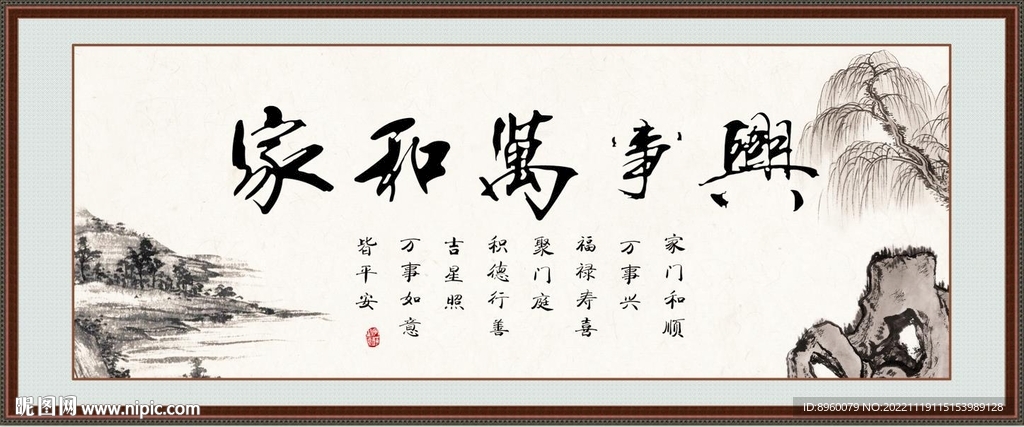 家和萬事興
家门和顺
万事兴
福禄寿喜
聚门庭
积德行善
吉星照
万事如意
皆平安
昵图网 www.nipic.com
ID:8960079 NO:20221119115153989128